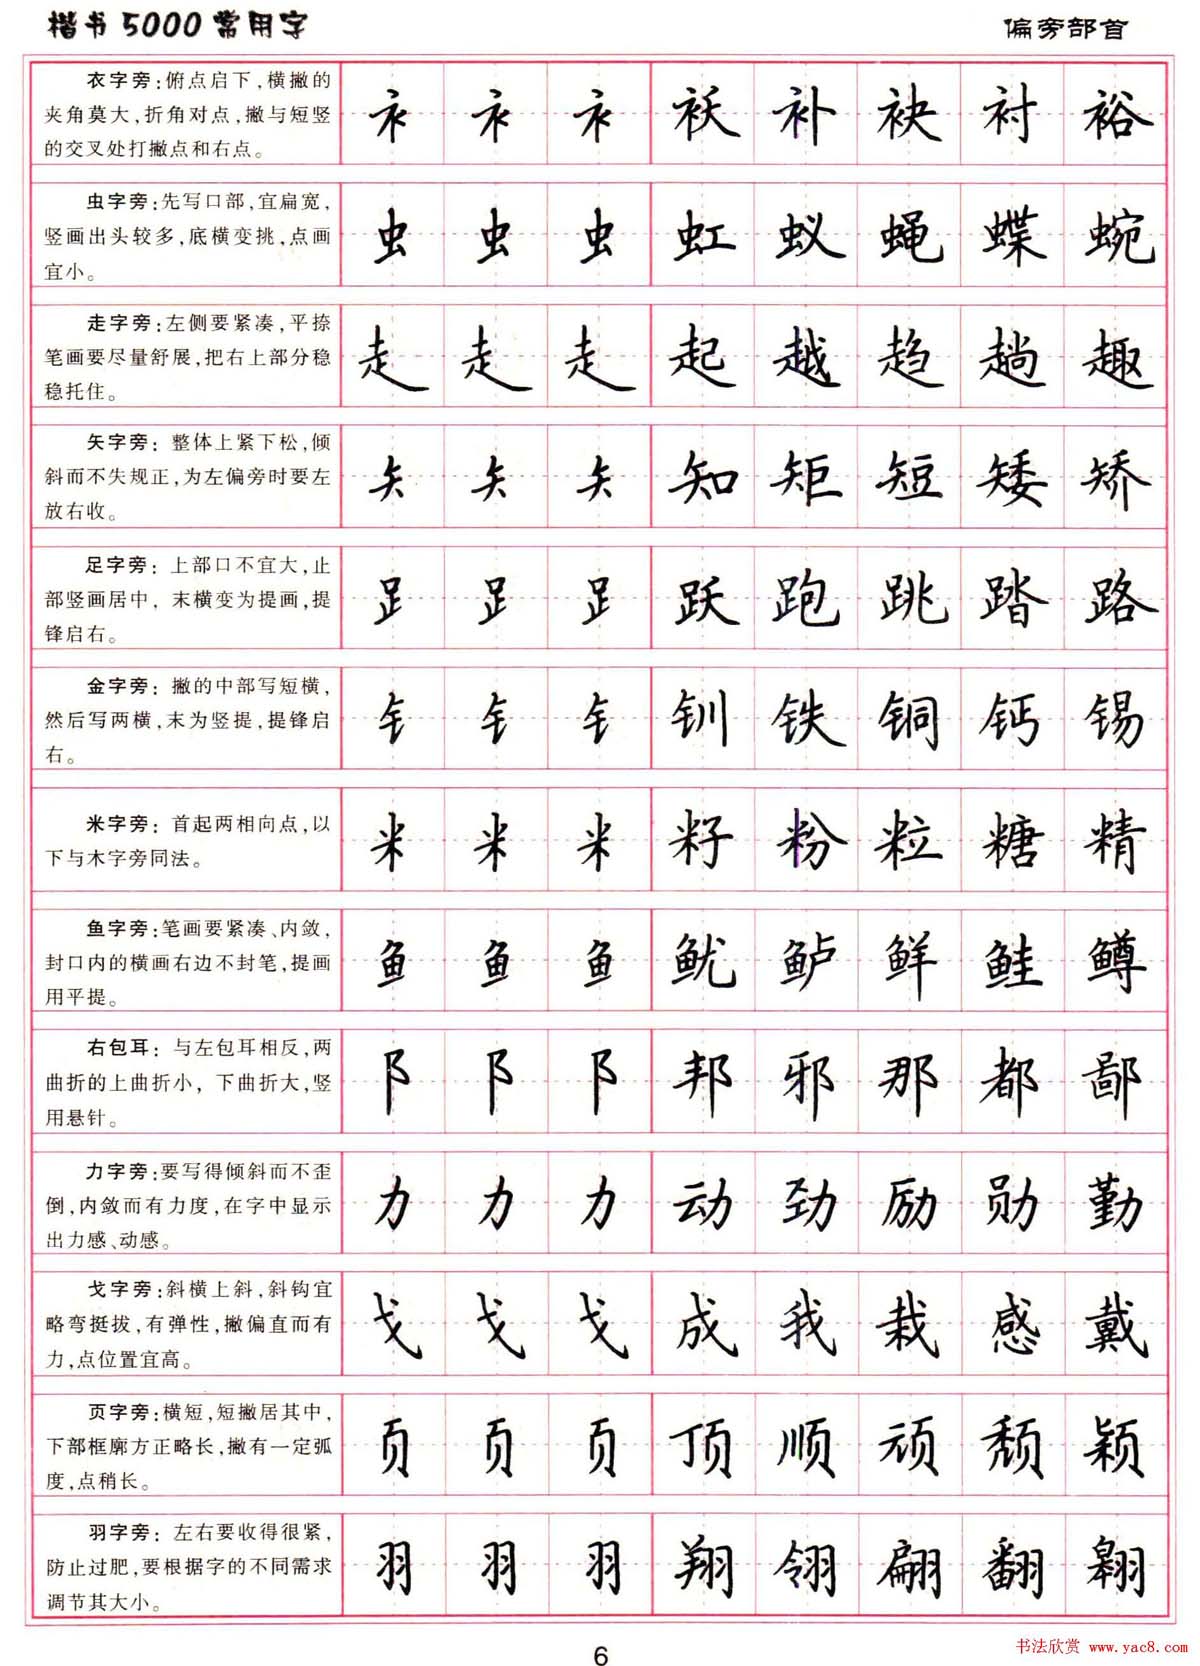 楷书5000常用字
偏旁部首
衣字旁:俯点启下,横撇的
夹角莫大,折角对点,撇与短竖
的交叉处打撇点和右点。
衤 衤 衤 袄 补 袂 衬 裕
虫字旁:先写口部,宜扁宽,
竖画出头较多,底横变挑,点画
宜小。
虫 虫 虫 虹 蚁 蝇 蝶 蜿
走字旁:左侧要紧凑,平捺
笔画要尽量舒展,把右上部分稳
稳托住。
走 走 走 起 越 趋 趟 趣
矢字旁:整体上紧下松,倾
斜而不失规正,为左偏旁时要左
放右收。
矢 矢 矢 知 矩 短 矮 矫
足字旁:上部口不宜大,止
部竖画居中,末横变为提画,提
锋启右。
⻊ ⻊ ⻊ 跃 跑 跳 踏 路
金字旁:撇的中部写短横,
然后写两横,末为竖提,提锋启
右。
钅 钅 钅 钏 铁 铜 钙 锡
米字旁:首起两相向点,以
下与木字旁同法。
米 米 米 籽 粉 粒 糖 精
鱼字旁:笔画要紧凑、内敛,
封口内的横画右边不封笔,提画
用平提。
鱼 鱼 鱼 鱿 鲈 鲜 鲑 鳟
右包耳:与左包耳相反,两
曲折的上曲折小,下曲折大,竖
用悬针。
阝 阝 阝 邦 邪 那 都 鄙
力字旁:要写得倾斜而不歪
倒,内敛而有力度,在字中显示
出力感、动感。
力 力 力 动 劲 励 勋 勤
戈字旁:斜横上斜,斜钩宜
略弯挺拔,有弹性,撇偏直而有
力,点位置宜高。
戈 戈 戈 成 我 栽 感 戴
页字旁:横短,短撇居其中,
下部框廓方正略长,撇有一定弧
度,点稍长。
页 页 页 顶 顺 顽 颓 颖
羽字旁:左右要收得很紧,
防止过肥,要根据字的不同需求
调节其大小。
羽 羽 羽 翔 翎 翩 翻 翱
6
书法欣赏 www.yac8.com